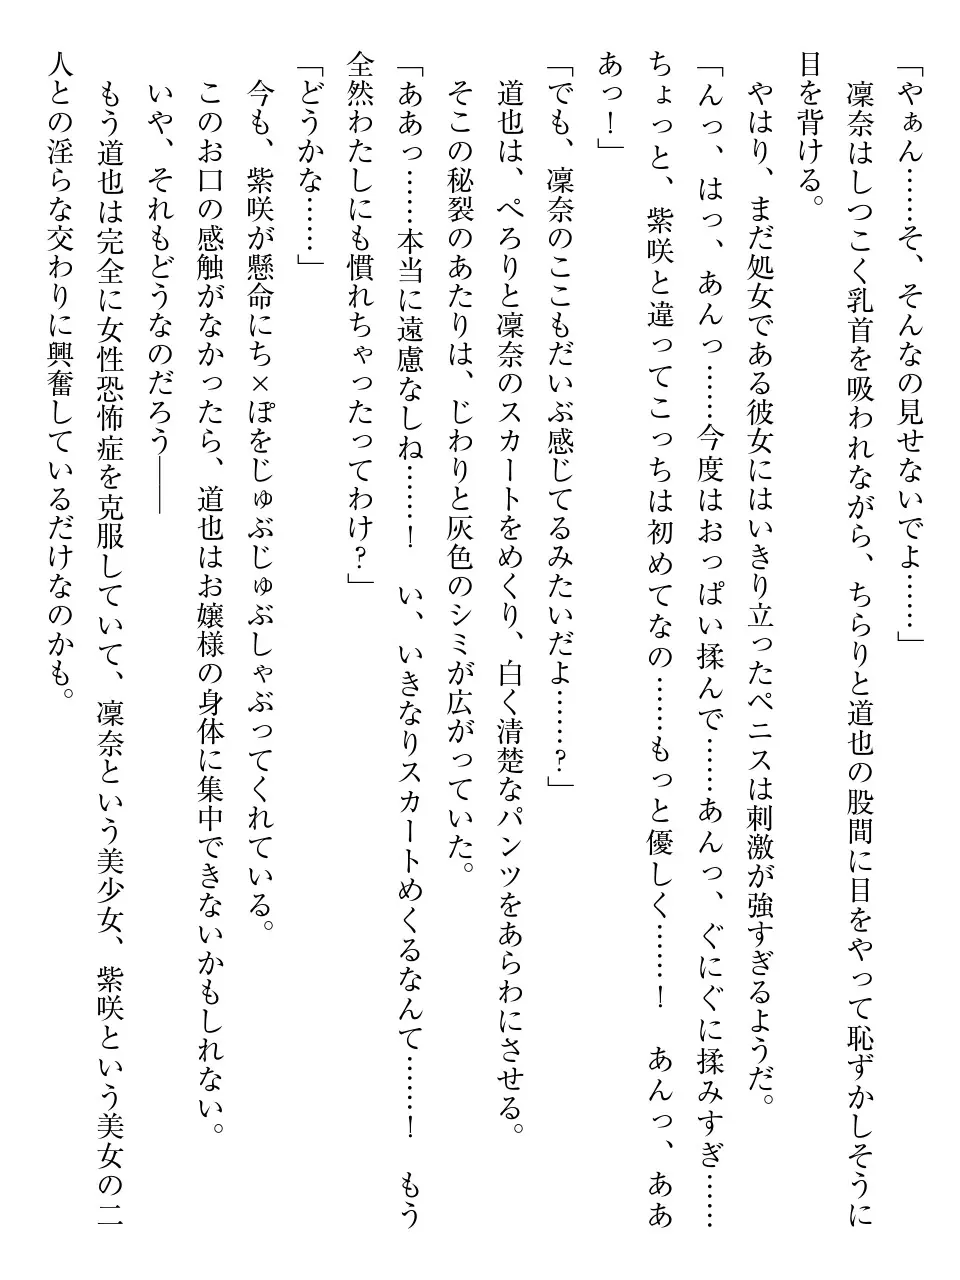 「やぁん……そ、そんなの見せないでよ……」
凛奈はしつこく乳首を吸われながら、ちらりと道也の股間に目をやって恥ずかしそうに
目を背ける。
やはり、まだ処女である彼女にはいきり立ったペニスは刺激が強すぎるようだ。
「んっ、はっ、あんっ……今度はおっぱい揉んで……あんっ、ぐにぐに揉みすぎ……
ちょっと、紫咲と違ってこっちは初めてなの……もっと優しく……！　あんっ、ああ
あっ！」
「でも、凛奈のここもだいぶ感じてるみたいだよ……？」
道也は、ぺろりと凛奈のスカートをめくり、白く清楚なパンツをあらわにさせる。
そこの秘裂のあたりは、じわりと灰色のシミが広がっていた。
「ああっ……本当に遠慮なしね……！　い、いきなりスカートめくるなんて……！　もう
全然わたしにも慣れちゃったってわけ？」
「どうかな……」
今も、紫咲が懸命にち×ぽをじゅぶじゅぶしゃぶってくれている。
このお口の感触がなかったら、道也はお嬢様の身体に集中できないかもしれない。
いや、それもどうなのだろう――
もう道也は完全に女性恐怖症を克服していて、凛奈という美少女、紫咲という美女の二
人との淫らな交わりに興奮しているだけなのかも。